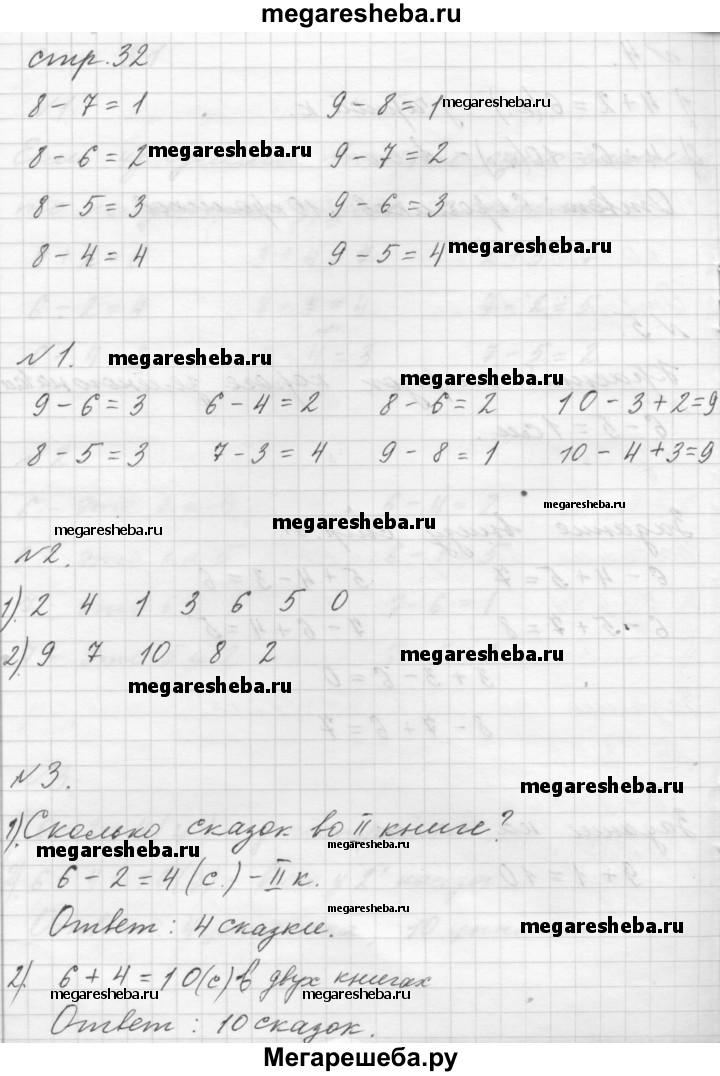 megaresheba.ru
стр. 32
8 - 7 = 1 9 - 8 = 1 megaresheba.ru
8 - 6 = 2 megaresheba.ru 9 - 7 = 2
8 - 5 = 3 9 - 6 = 3
8 - 4 = 4 9 - 5 = 4 megaresheba.ru
№1. megaresheba.ru
megaresheba.ru
9 - 6 = 3 6 - 4 = 2 8 - 6 = 2 10 - 3 + 2 = 9
8 - 5 = 3 7 - 3 = 4 9 - 8 = 1 10 - 4 + 3 = 9
megaresheba.ru megaresheba.ru megaresheba.ru
№2.
1). 2 4 1 3 6 5 0
2). 9 7 10 8 2 megaresheba.ru
megaresheba.ru
№3. megaresheba.ru
1). Сколько сказок во II книге?
megaresheba.ru megaresheba.ru
6 - 2 = 4 (с.) - II к.
Ответ: 4 сказки.
2). 6 + 4 = 10 (с) в двух книгах
megaresheba.ru megaresheba.ru
Ответ: 10 сказок.
Мегарешеба.ру